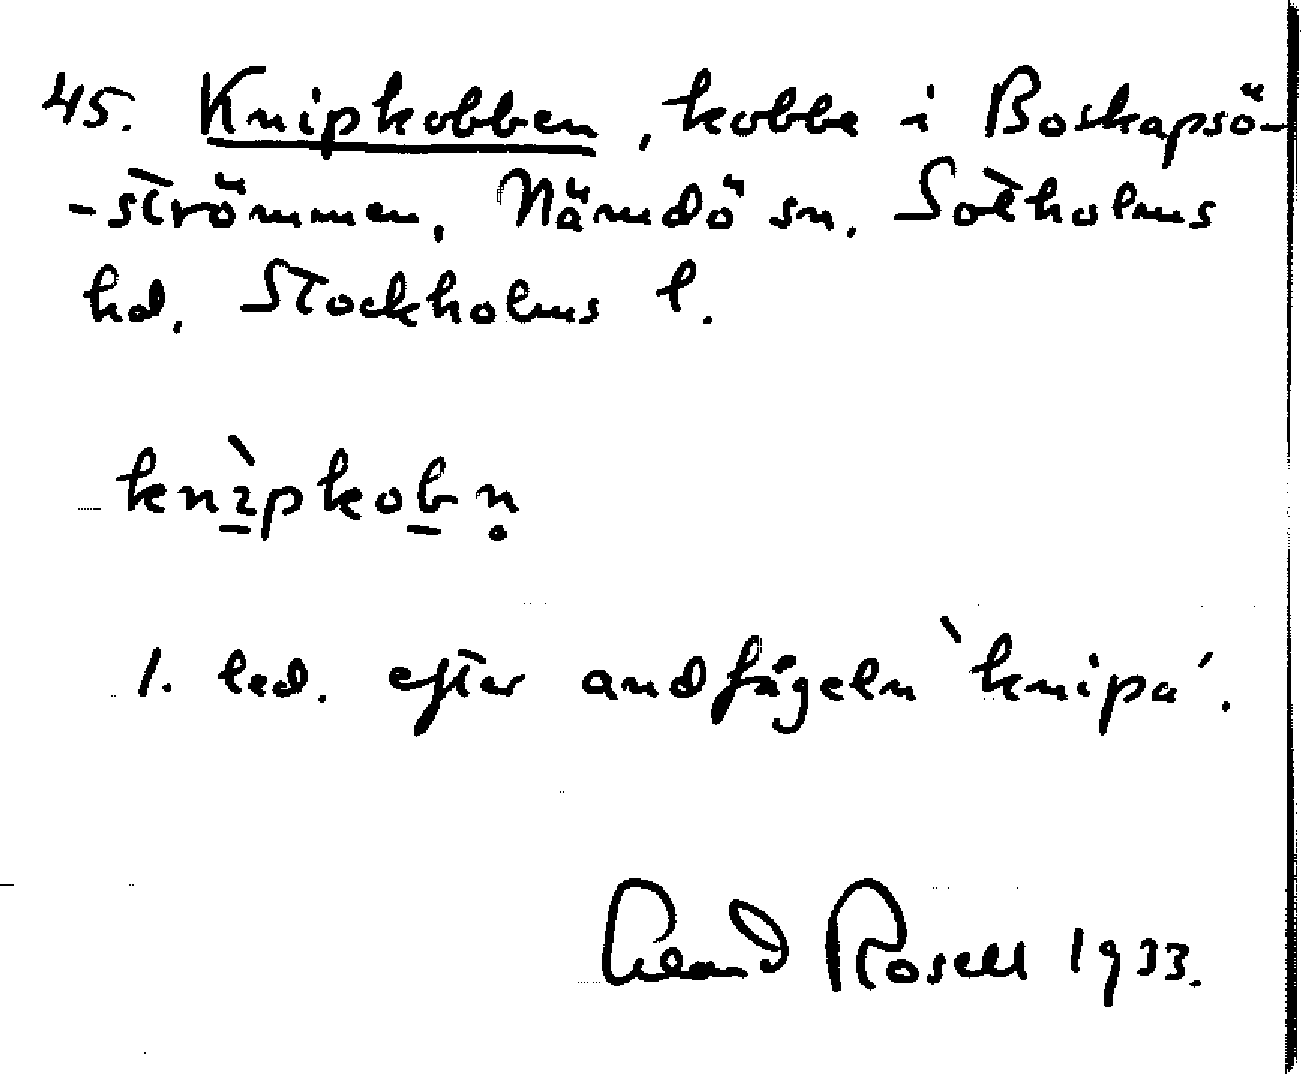 45. Knipkobben, kobbe i Boskapsö-
-strömmen, Nämdö sn. Sotholms
hd. Stockholms l.
knìpkobn̥
1. led. efter andfågeln `knipa´.
Rosell 1933.